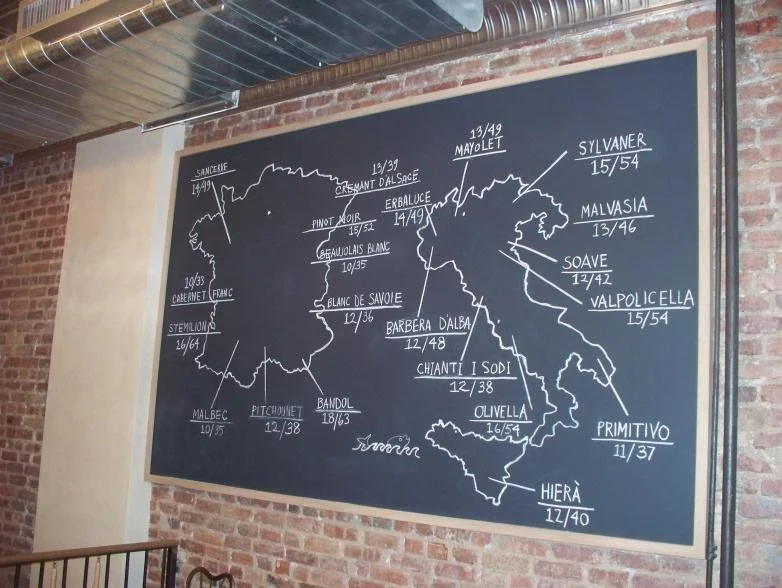 SANCERRE
14/49
13/39
CREMANT D'ALSACE
PINOT NOIR
15/52
BEAUJOLAIS BLANC
10/35
10/33
CABERNET FRANC
BLANC DE SAVOIE
12/36
STEMILION
26/64
MALBEC
10/35
PITCHOUNET
12/38
BANDOL
18/63
13/49
MAYOLET
ERBALUCE
14/49
SYLVANER
15/54
MALVASIA
13/46
SOAVE
12/42
VALPOLICELLA
15/54
BARBERA D'ALBA
12/48
CHIANTI I SODI
12/38
OLIVELLA
16/54
PRIMITIVO
11/37
HIERÀ
12/40